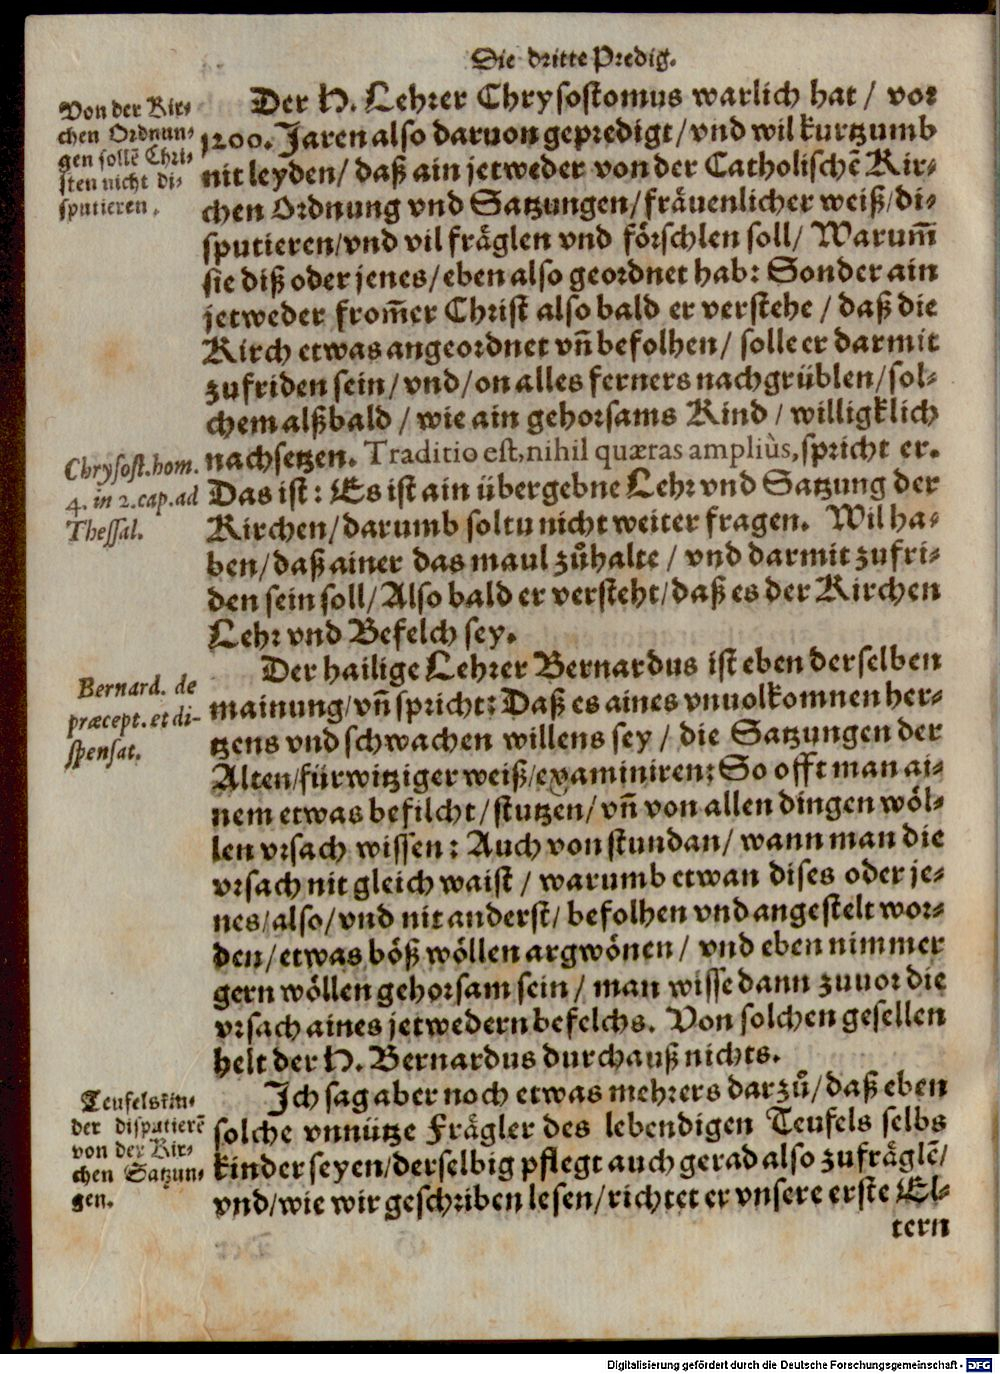 Die dritte Predig.
Von der Kir-
chen Ordnun-
gen sollē Chri-
sten nicht di-
sputieren.
Der H. Lehrer Chrysostomus warlich hat / vor
1200. Jaren also daruon gepredigt / vnd wil kurtzumb
nit leyden / daß ain jetweder von der Catholischē Kir-
chen Ordnung vnd Satzungen / fräuenlicher weiß / di-
sputieren / vnd vil fräglen vnd förschlen soll / Warum̄
sie diß oder jenes / eben also geordnet hab: Sonder ain
jetweder from̄er Christ also bald er verstehe / daß die
Kirch etwas angeordnet vn̄ befolhen / solle er darmit
zufriden sein / vnd / on alles ferners nachgrüblen / sol-
chem alßbald / wie ain gehorsams Kind / williglich
nachsetzen. Traditio est, nihil quæras ampliùs, spricht er.
Chrysost. hom.
4. in 2. cap. ad
Thessal.
Das ist: Es ist ain übergebne Lehr vnd Satzung der
Kirchen / darumb soltu nicht weiter fragen. Wil ha-
ben / daß ainer das maul zůhalte / vnd darmit zufri-
den sein soll / Also bald er versteht / daß es der Kirchen
Lehr vnd Befelch sey.
Der hailige Lehrer Bernardus ist eben derselben
Bernard. de
præcept. et di-
spensat.
mainung / vn̄ spricht: Daß es aines vnuolkomnen her-
tzens vnd schwachen willens sey / die Satzungen der
Alten / fürwitziger weiß / examiniren: So offt man ai-
nem etwas befilcht / stutzen / vn̄ von allen dingen wöl-
len vrsach wissen: Auch von stundan / wann man die
vrsach nit gleich waist / warumb etwan dises oder je-
nes / also / vnd nit anderst / befolhen vnd angestelt wor-
den / etwas böß wöllen argwönen / vnd eben nimmer
gern wöllen gehorsam sein / man wisse dann zuuor die
vrsach aines jetwedern befelchs. Von solchen gesellen
helt der H. Bernardus durchauß nichts.
Teufelskin-
der disputierē
von der Kir-
chen Satzun-
gen.
Ich sag aber noch etwas mehrers darzů / daß eben
solche vnnütze Frägler des lebendigen Teufels selbs
kinder seyen / derselbig pflegt auch gerad also zufräglē /
vnd / wie wir geschriben lesen / richtet er vnsere erste El-
tern
Digitalisierung gefördert durch die Deutsche Forschungsgemeinschaft - DFG